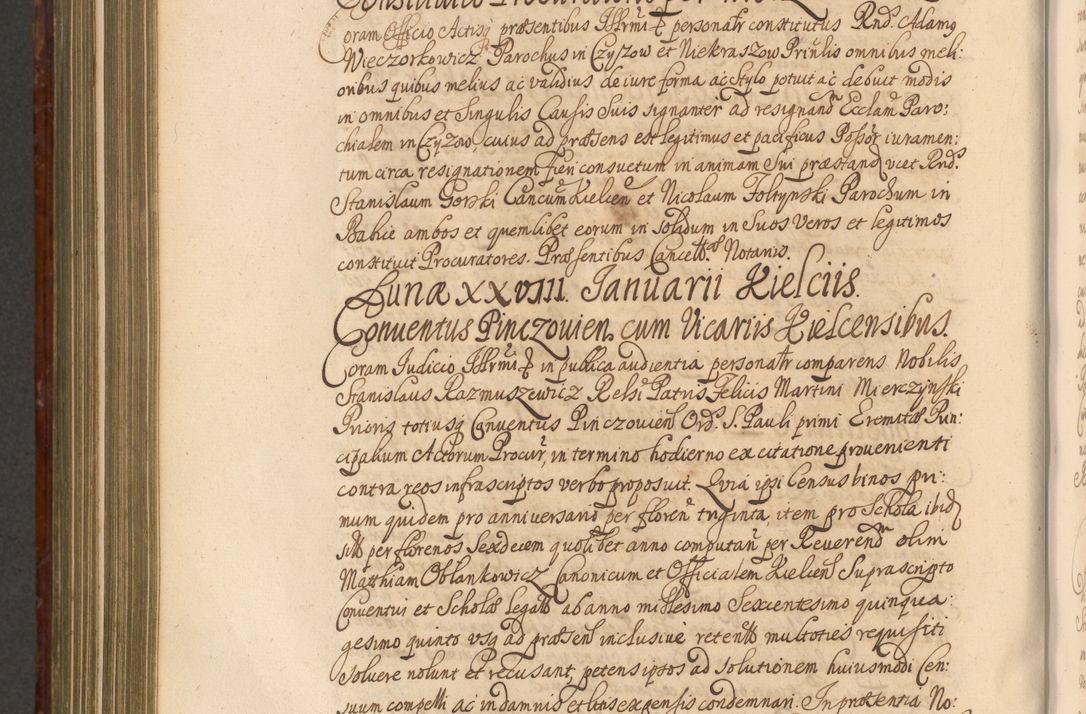 oram Officio Actisq præsentibus Illrmi personalr constitutus Rnd. Adamo
Wieczorkowicz Parochus in Czyżow et Niekraszow Prinlis omnibus meli:
oribus quibus melius ac validius de iure forma ac Stylo potuit ac debuit modis
in omnibus et Singulis Causis Suis signanter ad resignand Ecclam Paro:
chialem in Czyżow, cuius ad præsens est legitimus et pacificus Possor iuramen:
tum circa resignationem fieri consuetum in animam Sui præstand vcet Rnd.
Stanislaum Gorski Cancum Kielcien et Nicolaum Foltynski Parochum in
Bakie ambos et quemlibet eorum in Solidum in Suos Veros et legitimos
constituit Procuratores. Præsentibus Cancell. Notariis.
Lunæ XXVIII. Ianuarii Kielciis.
Conuentus Pinczouien. cum Vicariis Kielcensibus.
Coram Iudicio Illrmi in publica audientia personalr comparens Nobilis
Stanislaus Razmuszewicz Relsi Patris Felicis Martini Mierczynski
Prioris totiusq Conuentus Pinczouiens Ord. S. Pauli primi Eremitæ Prin:
cipalium Actorum Procur, in termino hodierno ex citatione prouenienti
contra reos infrascriptos verbo proposuit. Quia ipsi Census binos pri:
mum quidem pro anniversario per floren triginta, item pro Schola ibid
sitt per florenos Sexdecem quolibet anno computan per Reverend olim
Matthiam Oblankowicz Canonicum et Officialem Kielcens Suprascripto
Conuentui et Scholæ legatt ab anno millesimo Sexcentesimo quinqua:
gesimo quinto usq ad præsens inclusiue retentt multoties requisiti
Soluere nolunt et recusant, petens ipsos ad solutionem huiusmodi Cen:
suum compelli ac in damnis et litis expensis condemnari. In præsentia No: